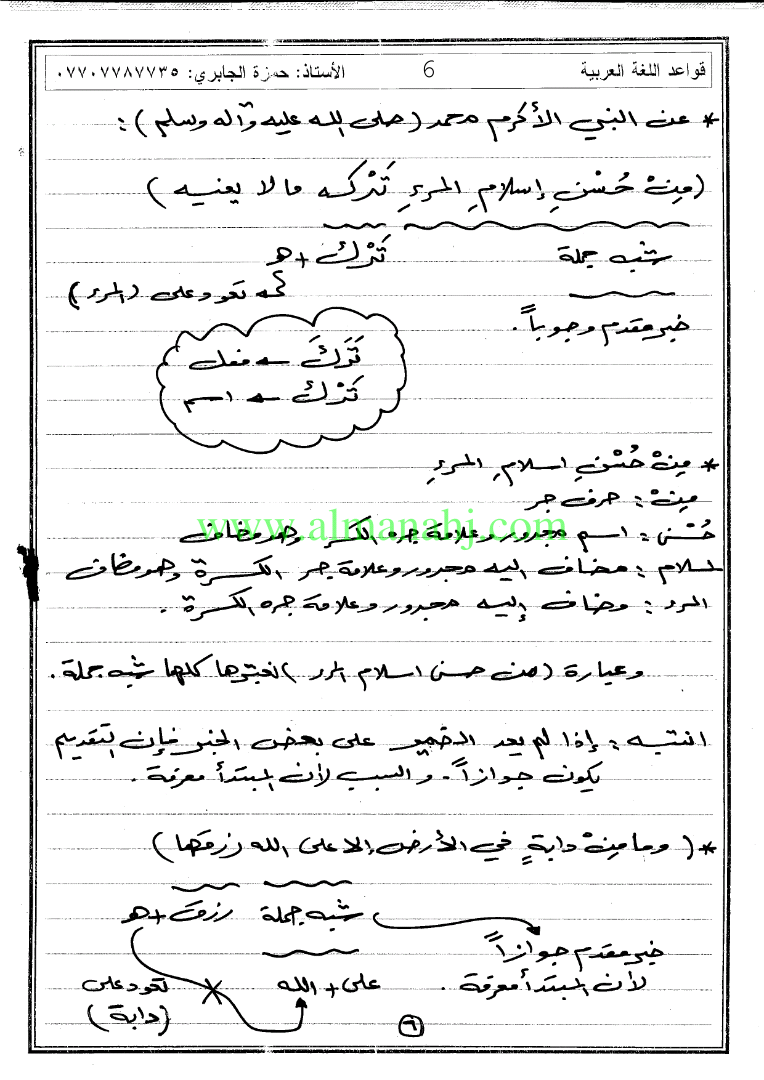 قواعد اللغة العربية 6 الأستاذ: حمزة الجابري: ٠٧٧٠٧٧٨٧٧٣٥
* عن النبي الأكرم محمد (صلى الله عليه وآله وسلم):
(مِنْ حُسْنِ إسلامِ المرءِ تَرْكه ما لا يعنيه)
شبه جملة تَرْكُ + هـ
تعود على (المرء)
خبر مقدم وجوباً.
تَرَكَ فعل
تَرْكُ اسم
* مِنْ حُسْنِ اسلامِ المرءِ
مِنْ : حرف جر
www.almanahj.com
حُسْنِ : اسم مجرور وعلامة جره الكسر وهو مضاف
اسلام : مضاف اليه مجرور وعلامة جر الكسرة وهو مضاف
المرء : مضاف إليه مجرور وعلامة جره الكسرة .
وعبارة (من حسن اسلام المرء) نعتبرها كلها شبه جملة .
انتبه : إذا لم يعد الضمير على بعض الخبر فإن التقديم
يكون جوازاً . والسبب لأن المبتدأ معرفة .
* (وما مِنْ دابةٍ في الأرض إلا على الله رزقها)
شبه جملة رزق + هـ
خبر مقدم جوازاً
لأن المبتدأ معرفة . على + الله تعود على
(دابة)
٦